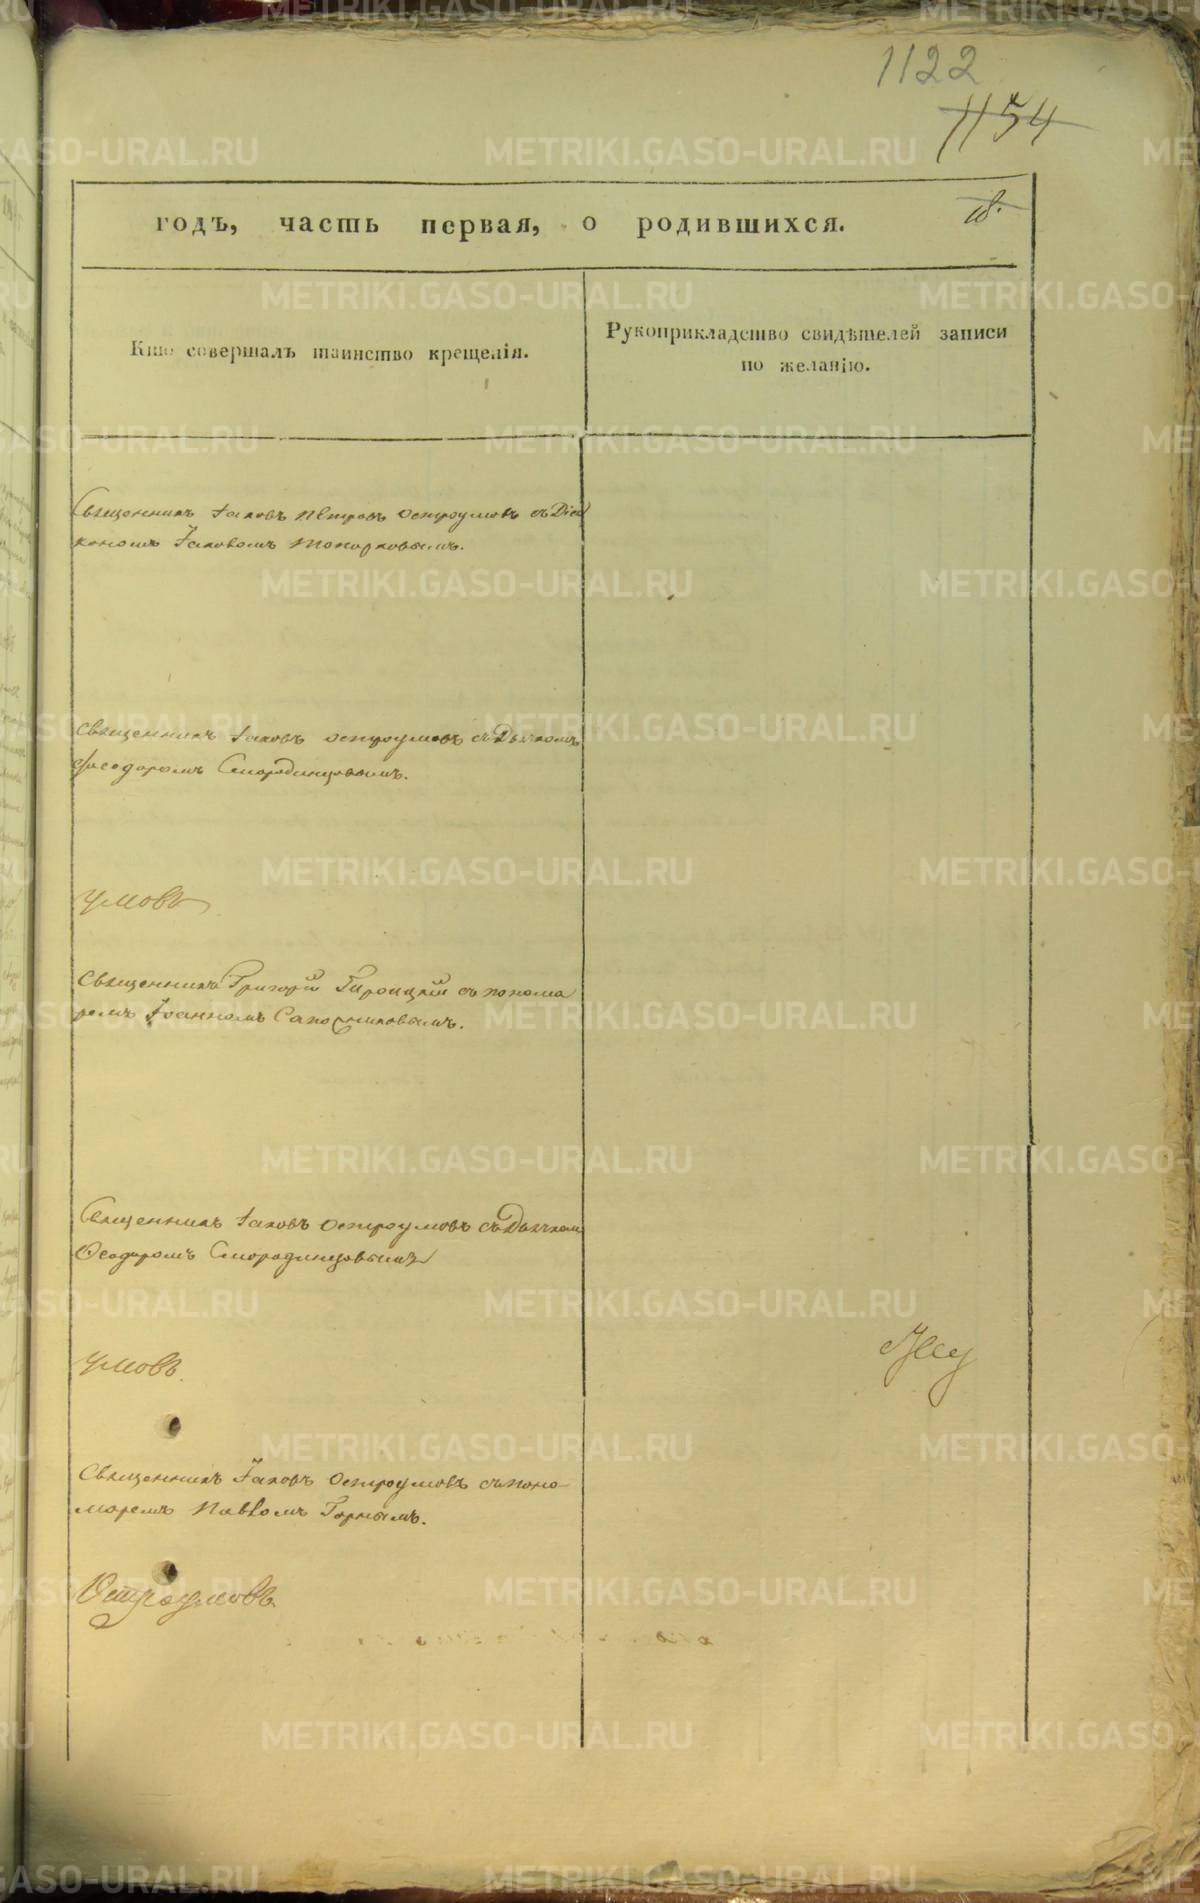 1122
1154
18.
годъ, часть первая, о родившихся.
Кто совершалъ таинство крещенія.
Рукоприкладство свидѣтелей записи
по желанію.
Священникъ Іаковъ Петровъ Остроумовъ съ Діа
кономъ Іаковомъ Топорковымъ.
Священникъ Іаковъ Остроумовъ съ Дьячкомъ
Феодоромъ Смородинцовымъ.
умовъ
Священникъ Григорій съ понома
ремъ Іоанномъ Сапожниковымъ.
Священникъ Іаковъ Остроумовъ съ Дьячком
Ѳеодоромъ Смородинцовымъ
умовъ.
Священникъ Іаковъ Остроумовъ съ поно-
маремъ Павломъ Горнымъ.
Остроумовъ.
METRIKI.GASO-URAL.RU